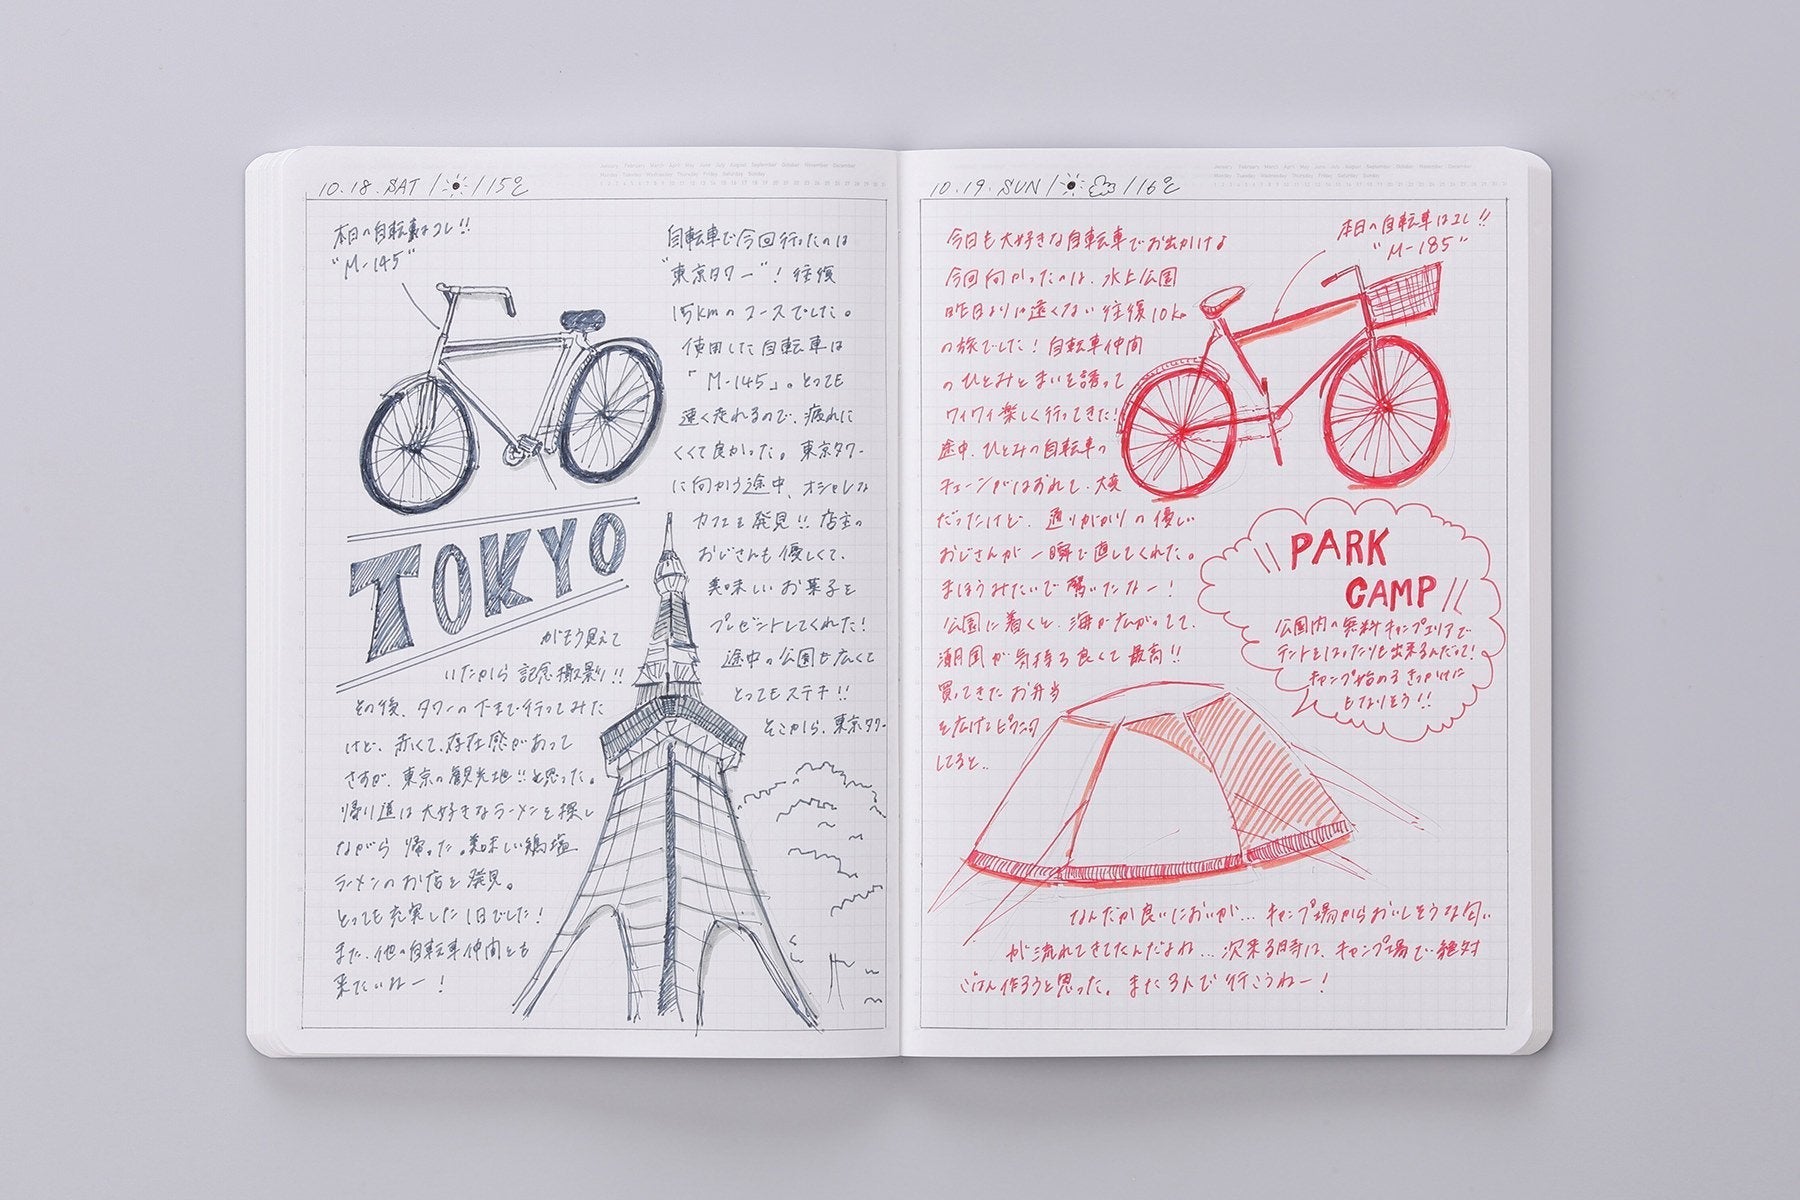 January February March April May June July August September October November December
Monday Tuesday Wednesday Thursday Friday Saturday Sunday
10.18. SAT / / 15℃
本日の自転車はコレ!!
"M-145"
自転車で今回行ったのは
"東京タワー"! 往復
15kmのコースでした。
使用した自転車は
「M-145」。とっても
速く走れるので、疲れに
くくて良かった。東京タワー
に向かう途中、オシャレな
カフェを発見!! 店主の
おじさんも優しくて、
美味しいお菓子を
プレゼントしてくれた!
途中の公園も広くて
とってもステキ!!
そこから、東京タワー
TOKYO
がもう見えて
いたから記念撮影り!!
その後、タワーの下まで行ってみた
けど、赤くて、存在感があって
さすが、東京の観光地!!と思った。
帰り道は大好きなラーメンを探し
ながら 帰った。美味しい鶏塩
ラーメンのお店を発見。
とっても充実した1日でした!
また、他の自転車仲間とも
来たいねー!
January February March April May June July August September October November December
Monday Tuesday Wednesday Thursday Friday Saturday Sunday
10.19. SUN / / 16℃
本日の自転車はコレ!!
"M-185"
今日も大好きな自転車でお出かけな
今回向かったのは、水上公園
昨日よりは遠くない往復10km
の旅でした! 自転車仲間
のひとみとまいを誘って
ワイワイ楽しく行ってきた!
途中、ひとみの自転車の
チェーンがはずれて、大変
だったけど、通りがかりの優しい
おじさんが一瞬で直してくれた。
まほうみたいで驚いたなー!
公園に着くと、海が広がってて、
潮風が気持ち良くて最高!!
買ってきたお弁当
を広げてピクニック
してると..
PARK
CAMP
公園内の無料キャンプエリアで
テントをはったりも出来るんだって!
キャンプ始めるきっかけに
もなりそう!!
なんだか良いにおいが... キャンプ場からおいしそうな匂い
が流れてきてたんだよね... 次来る時は、キャンプ場で絶対
ごはん作ろうと思った。また3人で行こうねー!